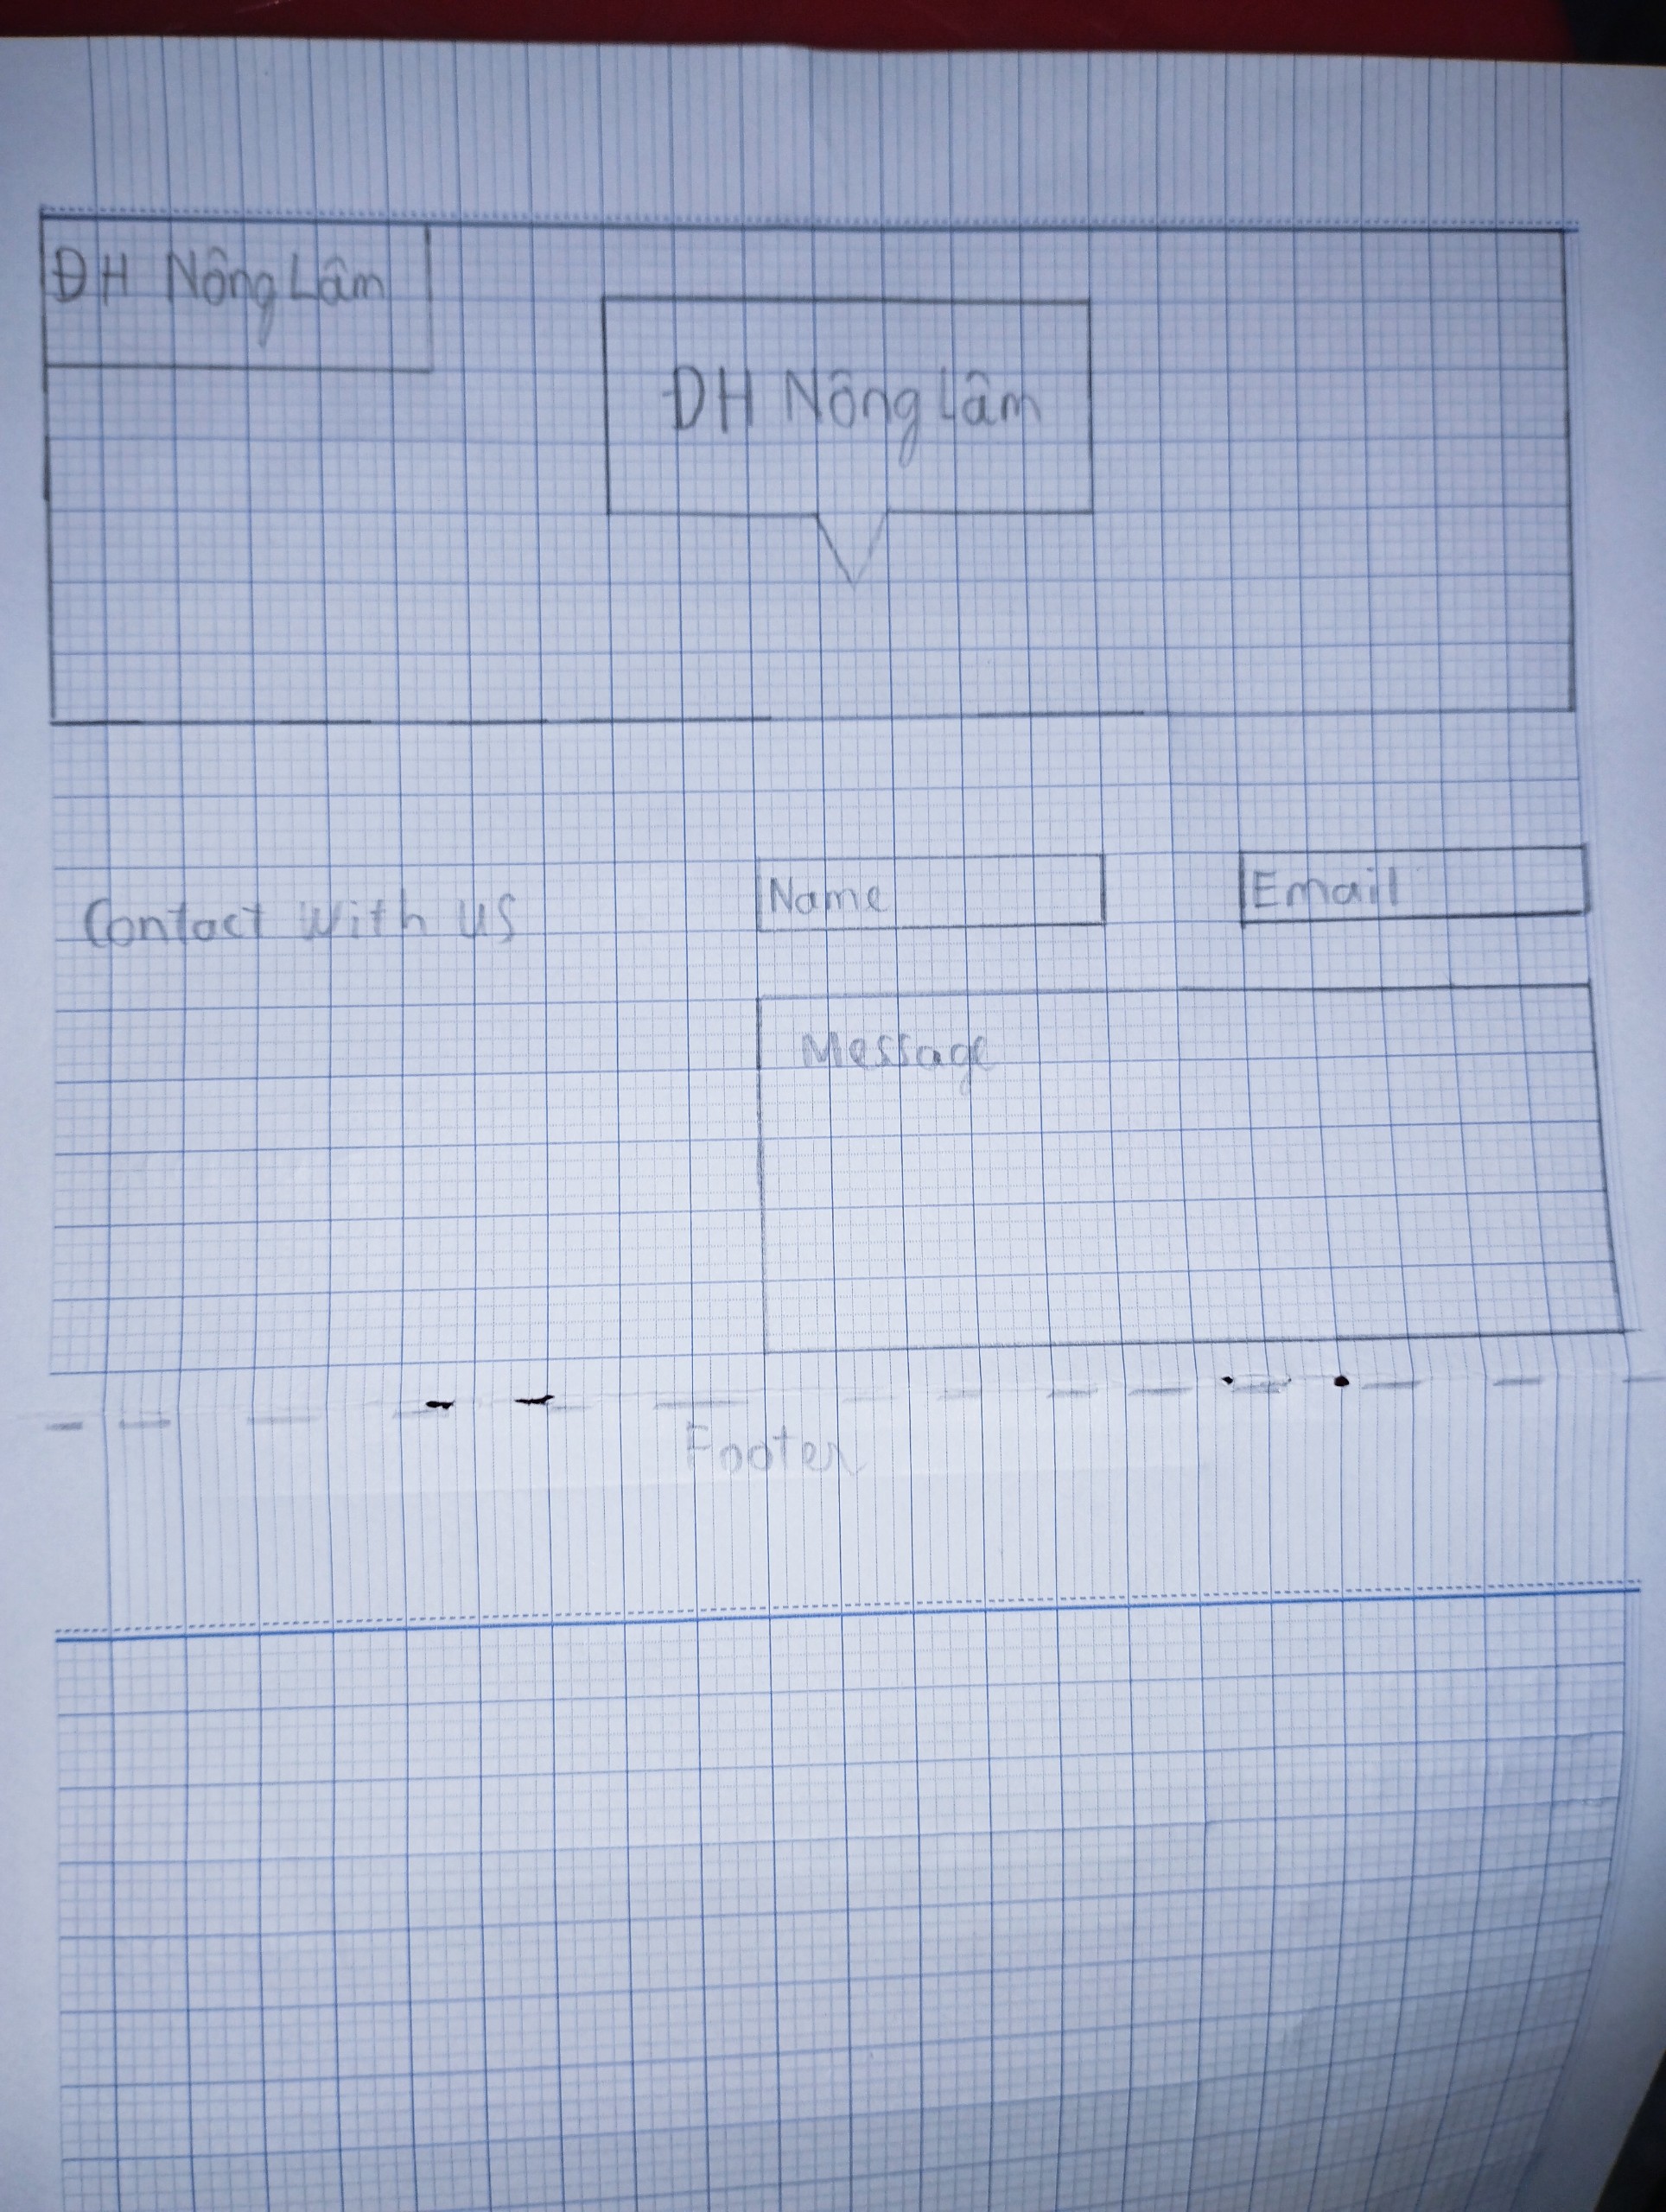 ĐH Nông Lâm
ĐH Nông Lâm
Contact With US
Name
Email
Message
Footer